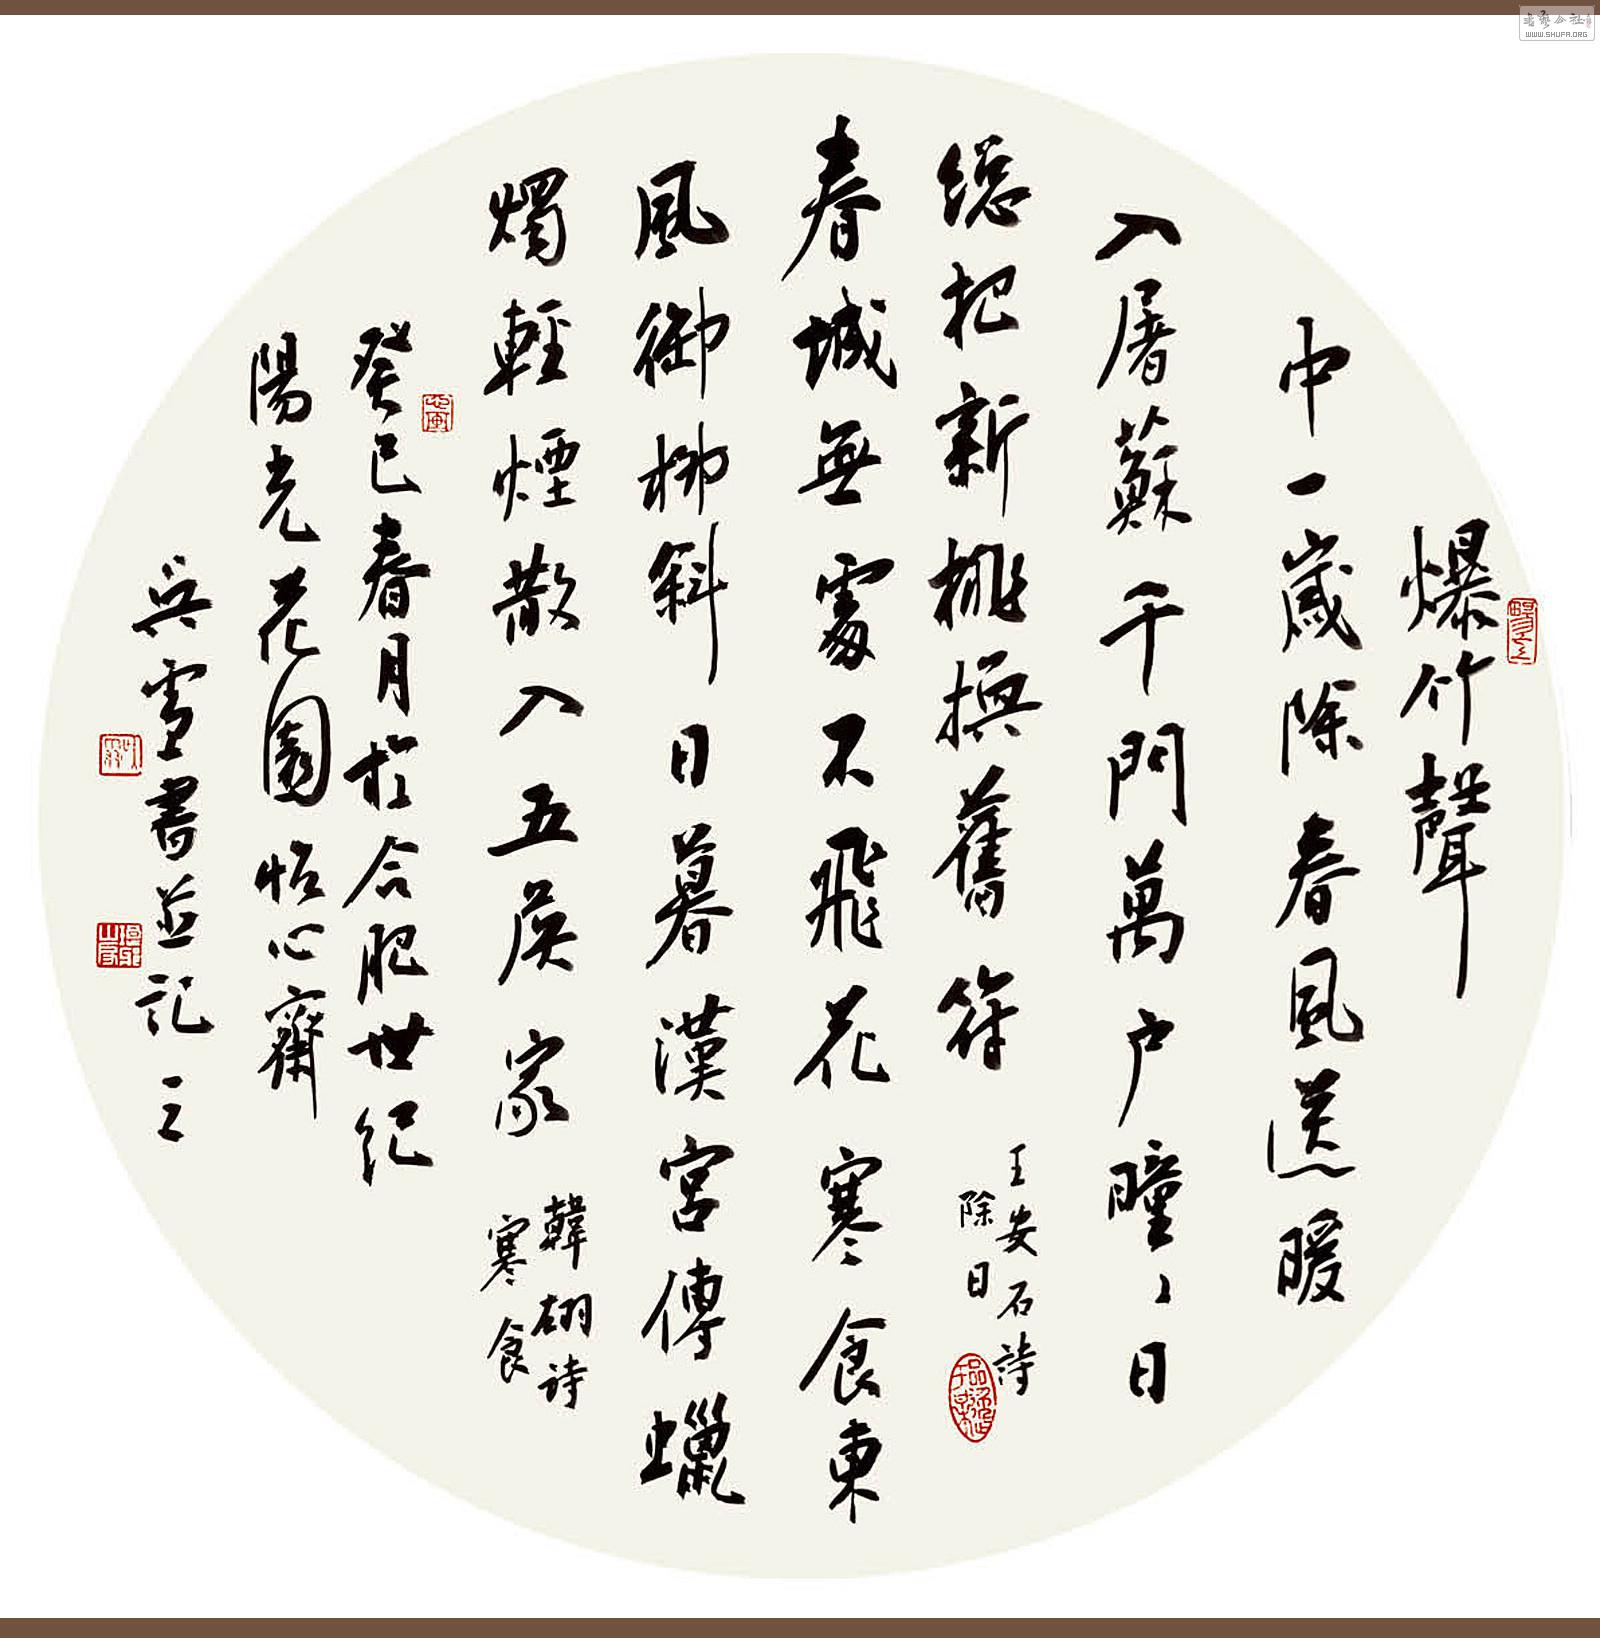 爆竹聲
中一歲除春風送暖
入屠蘇千門萬户曈〻日
總把新桃換舊符
王安石詩
除日
春城無處不飛花寒食東
風御柳斜日暮漢宮傳蠟
燭輕煙散入五侯家
韓翃詩
寒食
癸巳春月於合肥世紀
陽光花園心齋
吳雪書並記之
书艺公社
WWW.SHUFA.ORG